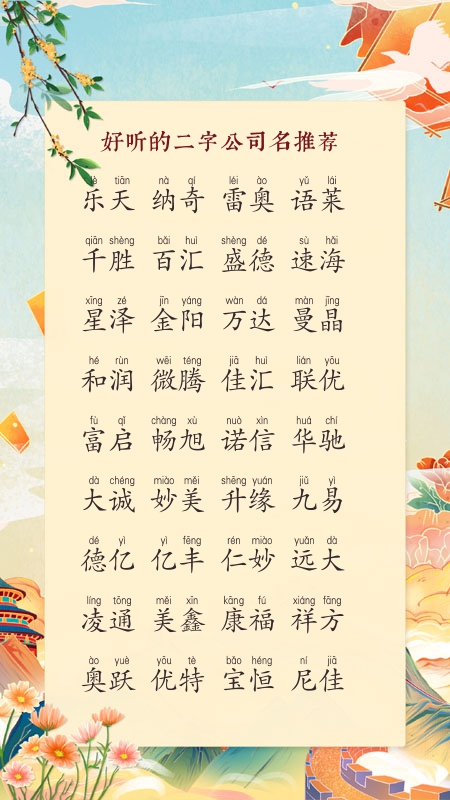 好听的二字公司名推荐
lè tiān nà qí léi ào yǔ lái
乐天 纳奇 雷奥 语莱
qiān shèng bǎi huì shèng dé sù hǎi
千胜 百汇 盛德 速海
xīng zé jīn yáng wàn dá màn jīng
星泽 金阳 万达 曼晶
hé rùn wēi téng jiā huì lián yōu
和润 微腾 佳汇 联优
fù qǐ chàng xù nuò xìn huá chí
富启 畅旭 诺信 华驰
dà chéng miào měi shēng yuán jiǔ yì
大诚 妙美 升缘 九易
dé yì yì fēng rén miào yuǎn dà
德亿 亿丰 仁妙 远大
líng tōng měi xīn kāng fú xiáng fāng
凌通 美鑫 康福 祥方
ào yuè yōu tè bǎo héng ní jiā
奥跃 优特 宝恒 尼佳